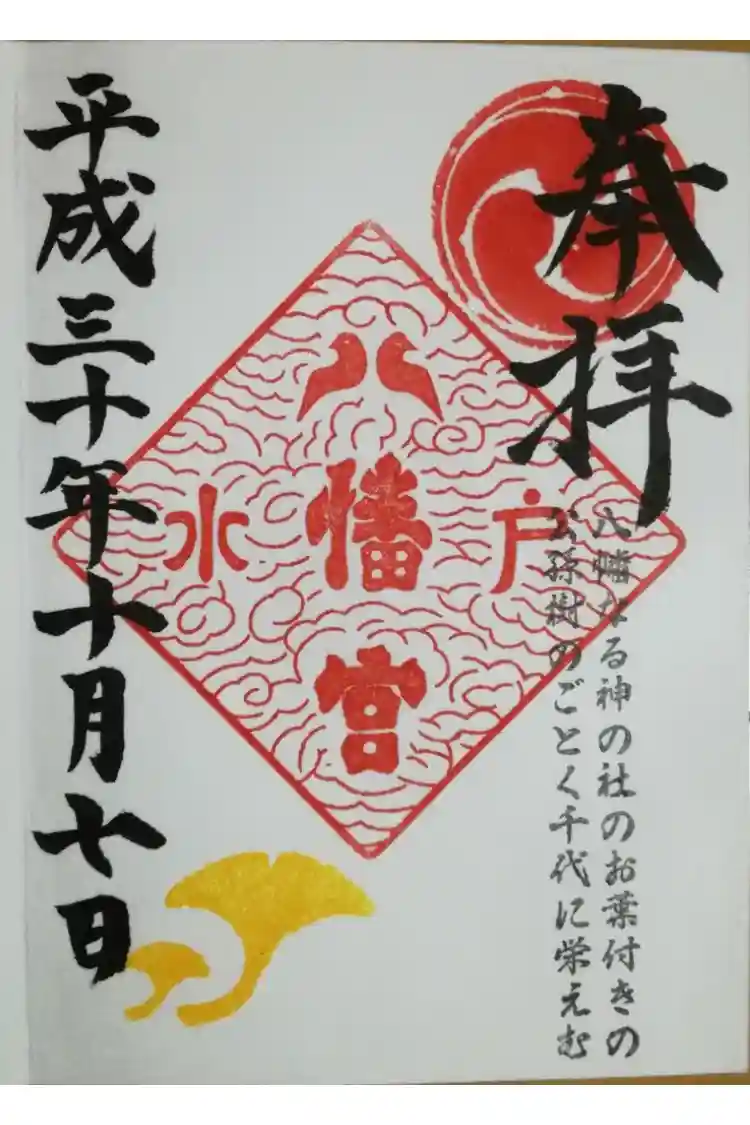 奉拝
八幡なる神の社のお葉付きの
公孫樹のごとく千代に栄えむ
水戸
八幡宮
平成三十年十月七日